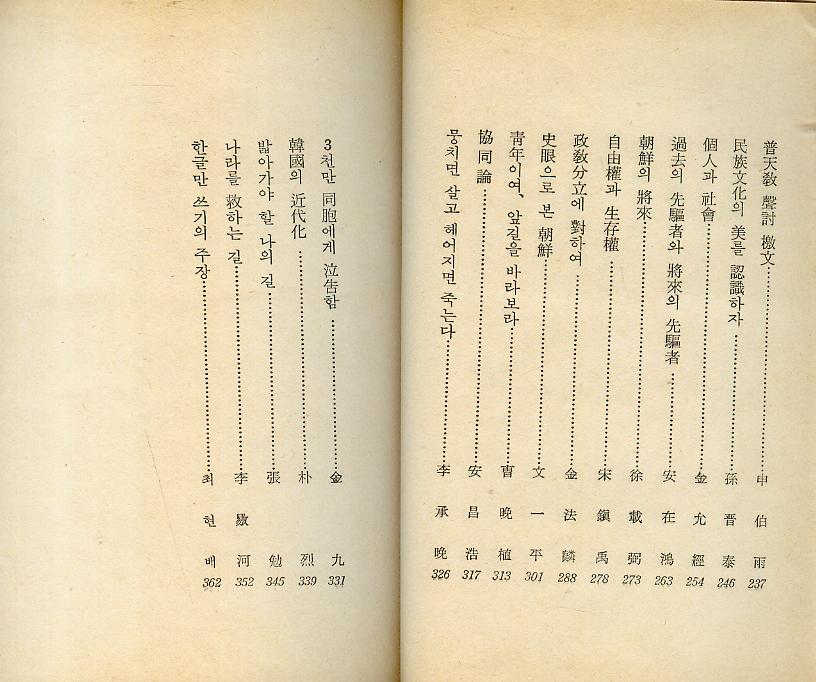 普天敎 聲討 檄文 申伯雨 237
民族文化의 美를 認識하자 孫晋泰 246
個人과 社會 金允經 254
過去의 先驅者와 將來의 先驅者 安在鴻 263
朝鮮의 將來 徐載弼 273
自由權과 生存權 宋鎭禹 278
政敎分立에 對하여 金法麟 288
史眼으로 본 朝鮮 文一平 301
靑年이여, 앞길을 바라보라 曺晩植 313
協同論 安昌浩 317
뭉치면 살고 헤어지면 죽는다 李承晩 326
3천만 同胞에게 泣告함 金九 331
韓國의 近代化 朴烈 339
밟아가야 할 나의 길 張勉 345
나라를 救하는 길 李敭河 352
한글만 쓰기의 주장 최현배 362